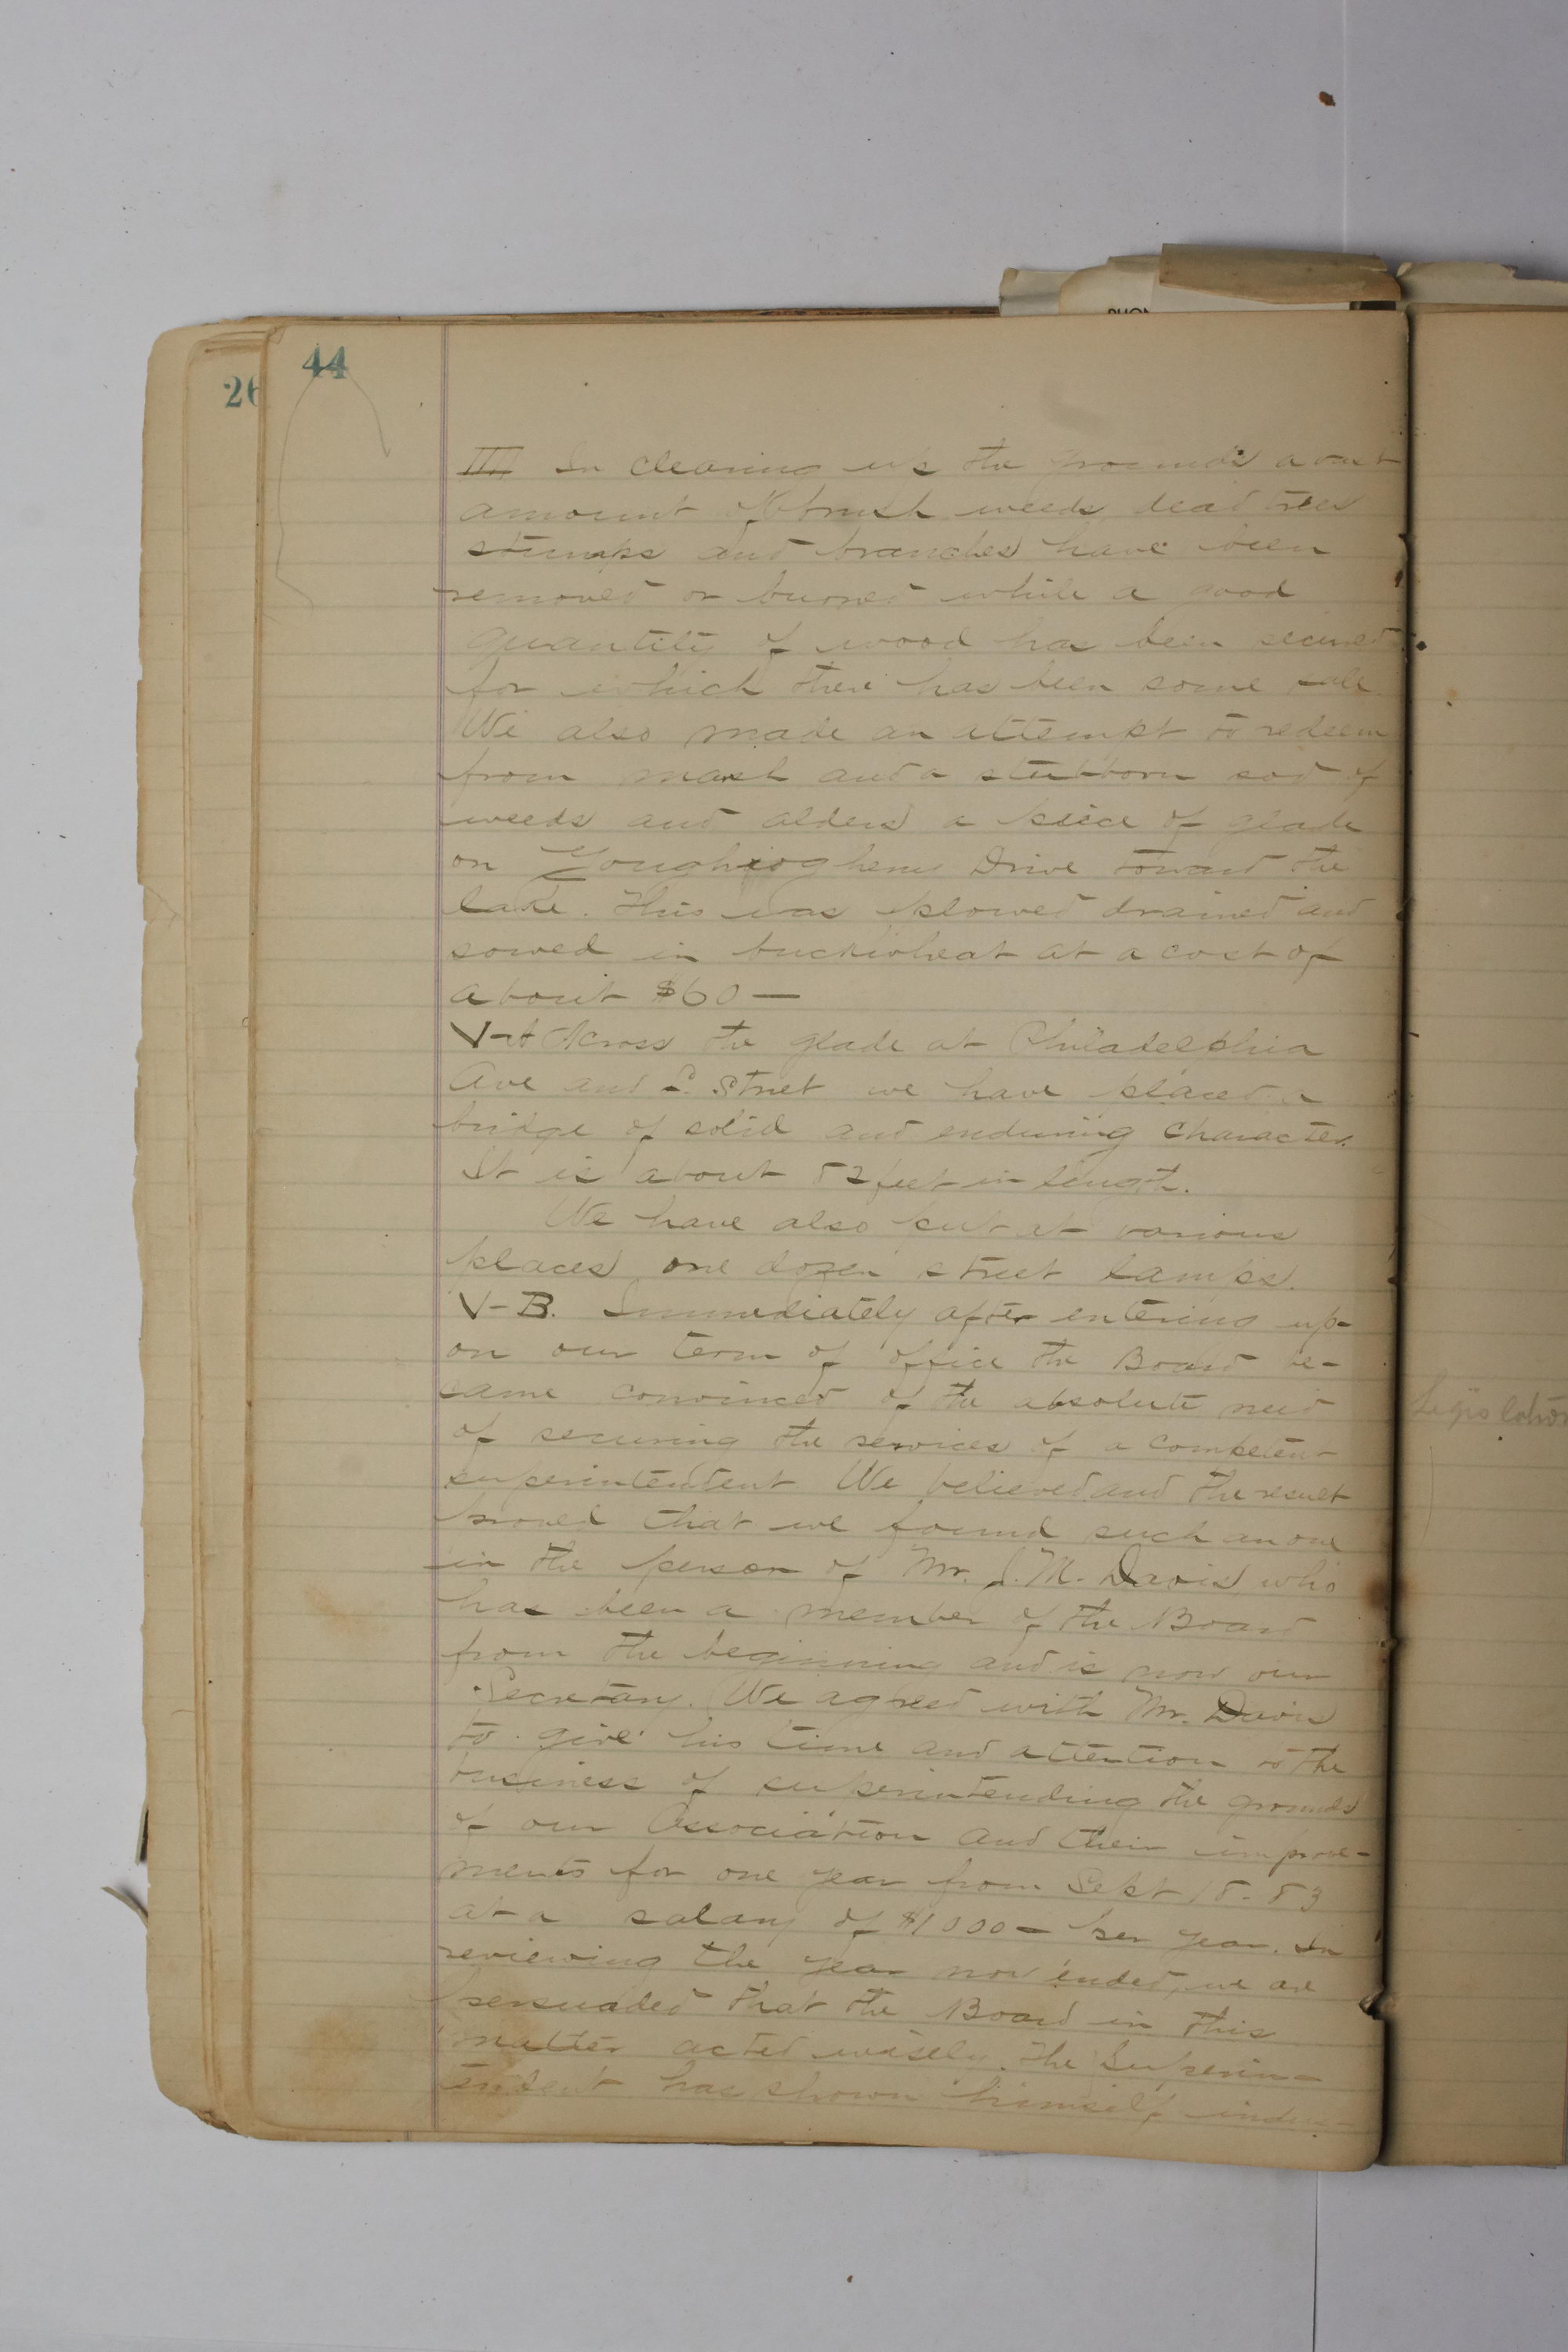 44
26
IIII In cleaning up the grounds a vast
amount of brush weeds, dead trees
stumps and branches have been
removed or burned while a good
quantity of wood has been secured
for which there has been some sale
We also made an attempt to redeem
from marsh and a stubborn sod of
weeds and alders a piece of glade
on Youghiogheny Drive toward the
lake. This was plowed drained and
sowed in buckwheat at a cost of
about $60 —
V-A Across the glade at Philadelphia
Ave and E. Street we have placed a
bridge of solid and enduring character.
It is about 52 feet in length.
We have also put at various
places one dozen street lamps.
V-B. Immediately after entering up-
on our term of office the Board be-
came convinced of the absolute need
of securing the services of a competent
superintendent We believed and the result
proved that we found such an one
in the person of Mr. J. M. Davis who
has been a member of the Board
from the beginning and is now our
Secretary. We agreed with Mr. Davis
to give his time and attention to the
business of superintending the grounds
of our Association and their improve-
ments for one year from Sept 15-83
at a salary of $1000 — per year. In
reviewing the year now ended, we are
persuaded that the Board in this
matter acted wisely. The Superin-
tendent has shown himself indus-
Legislation